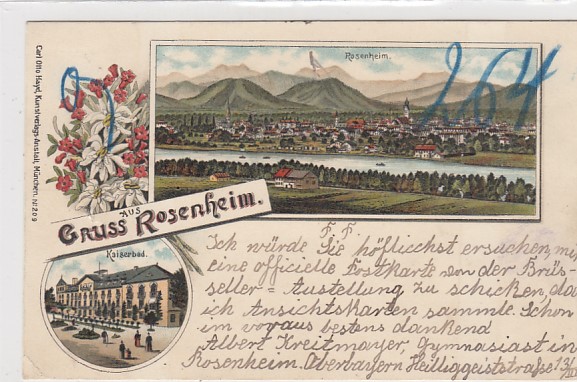 Carl Otto Hayd, Kunstverlags-Anstalt, München. No 209
Rosenheim.
264
GRUSS AUS ROSENHEIM.
Kaiserbad.
F. F.
Ich würde Sie höflicchst ersuchen, mir
eine officielle Postkarte von der Brüs-
seller = Austellung zu schicken, da
ich Ansichtskarten sammle. Schon
im voraus bestens dankend
Albert Kreitmayer, Gymnasiast in
Rosenheim. Oberbayern Heiliggeiststraße 13/II